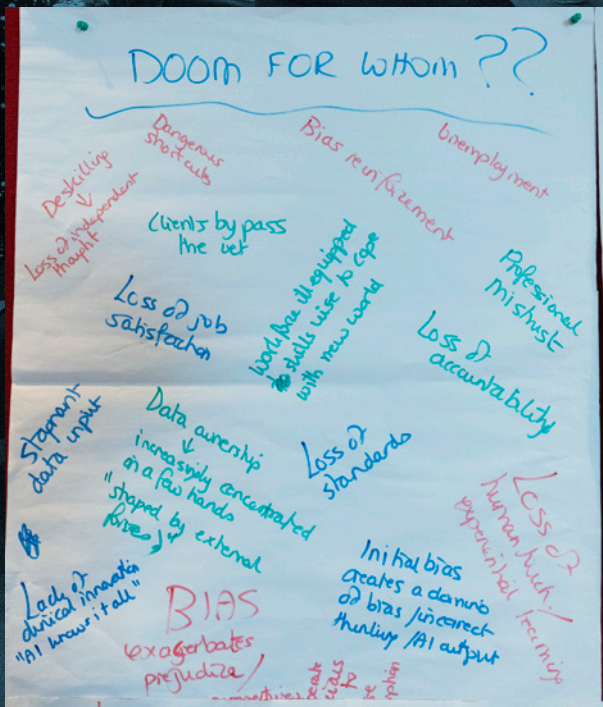 DOOM FOR WHOM ??
Deskilling
↓
Loss of independent
thought
Dangerous
shortcuts
Bias reinforcement
Unemployment
Clients bypass
the vet
Workforce ill equipped
skills wise to cope
with new world
Professional
mistrust
Loss of job
satisfaction
Loss of
accountability
Stagnant
data input
Data ownership
↓
increasingly concentrated
in a few hands
"shaped by external
forces"
Loss of
standards
Loss of
human touch /
experiential learning
Lack of
clinical innovation
"AI knows it all"
BIAS
exagerbates
prejudice /
Initial bias
creates a domino
of bias / incorrect
thinking / AI output